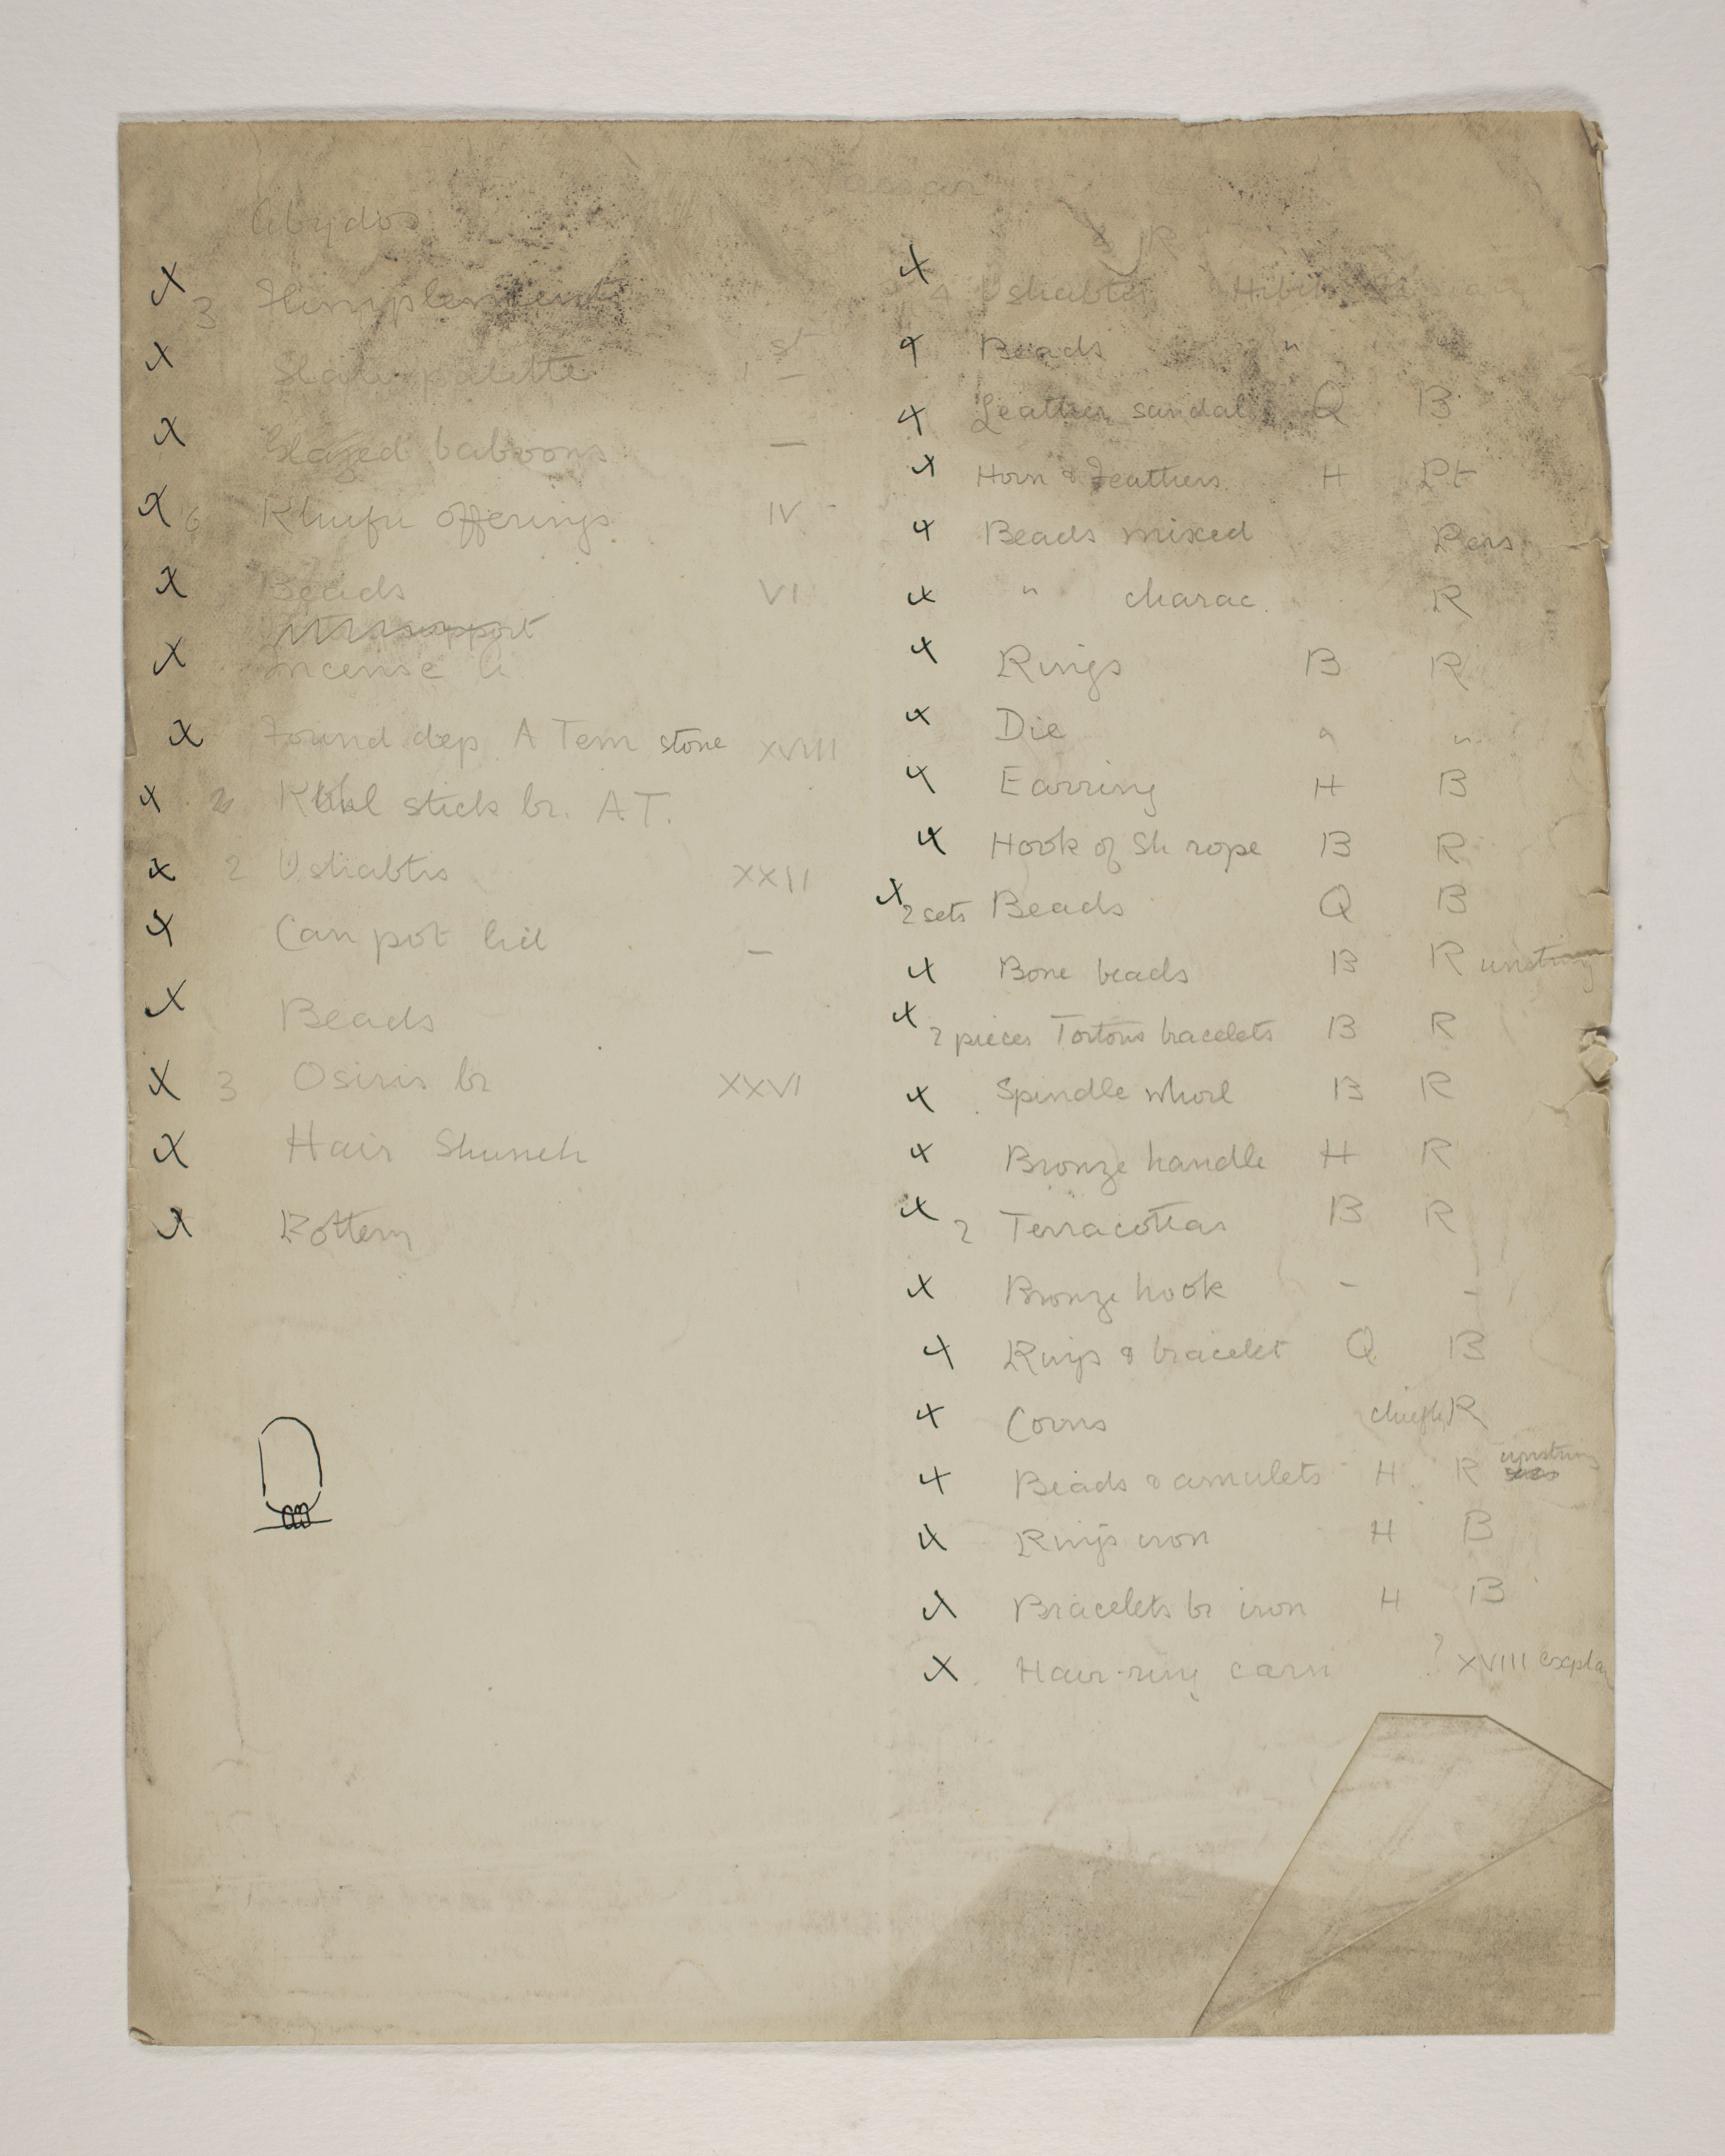 Vassar
Abydos
x 3 Fl implements
x Slate palette 1 st
x Glazed baboons —
x 6 Khufu offerings IV -
x Beads VI
support
x Incense
x Found dep. A Tem stone XVIII
x 2 Kohl stick br. A.T.
x 2 Ushabtis XXII
x Can pot lid —
x Beads
x 3 Osiris br XXVI
x Hair Shuneh
x Pottery
R
x 4 Ushabtis Hibeh
x Beads " "
x Leather sandal Q B
x Horn & Feathers H Pt
x Beads mixed Pers
x " charac. R
x Rings B R
x Die " "
x Earring H B
x Hook of Sh rope B R
x 2 sets Beads Q B
x Bone beads B R unstrung
x 2 pieces Tortois bracelets B R
x Spindle whorl B R
x Bronze handle H R
x 2 Terracottas B R
x Bronze hook - -
x Rings & bracelet Q B
x Coins chiefly R
x Beads & amulets H R unstrung
x Rings iron H B
x Bracelets br iron H B
x Hair-ring carn ? XVIII explan